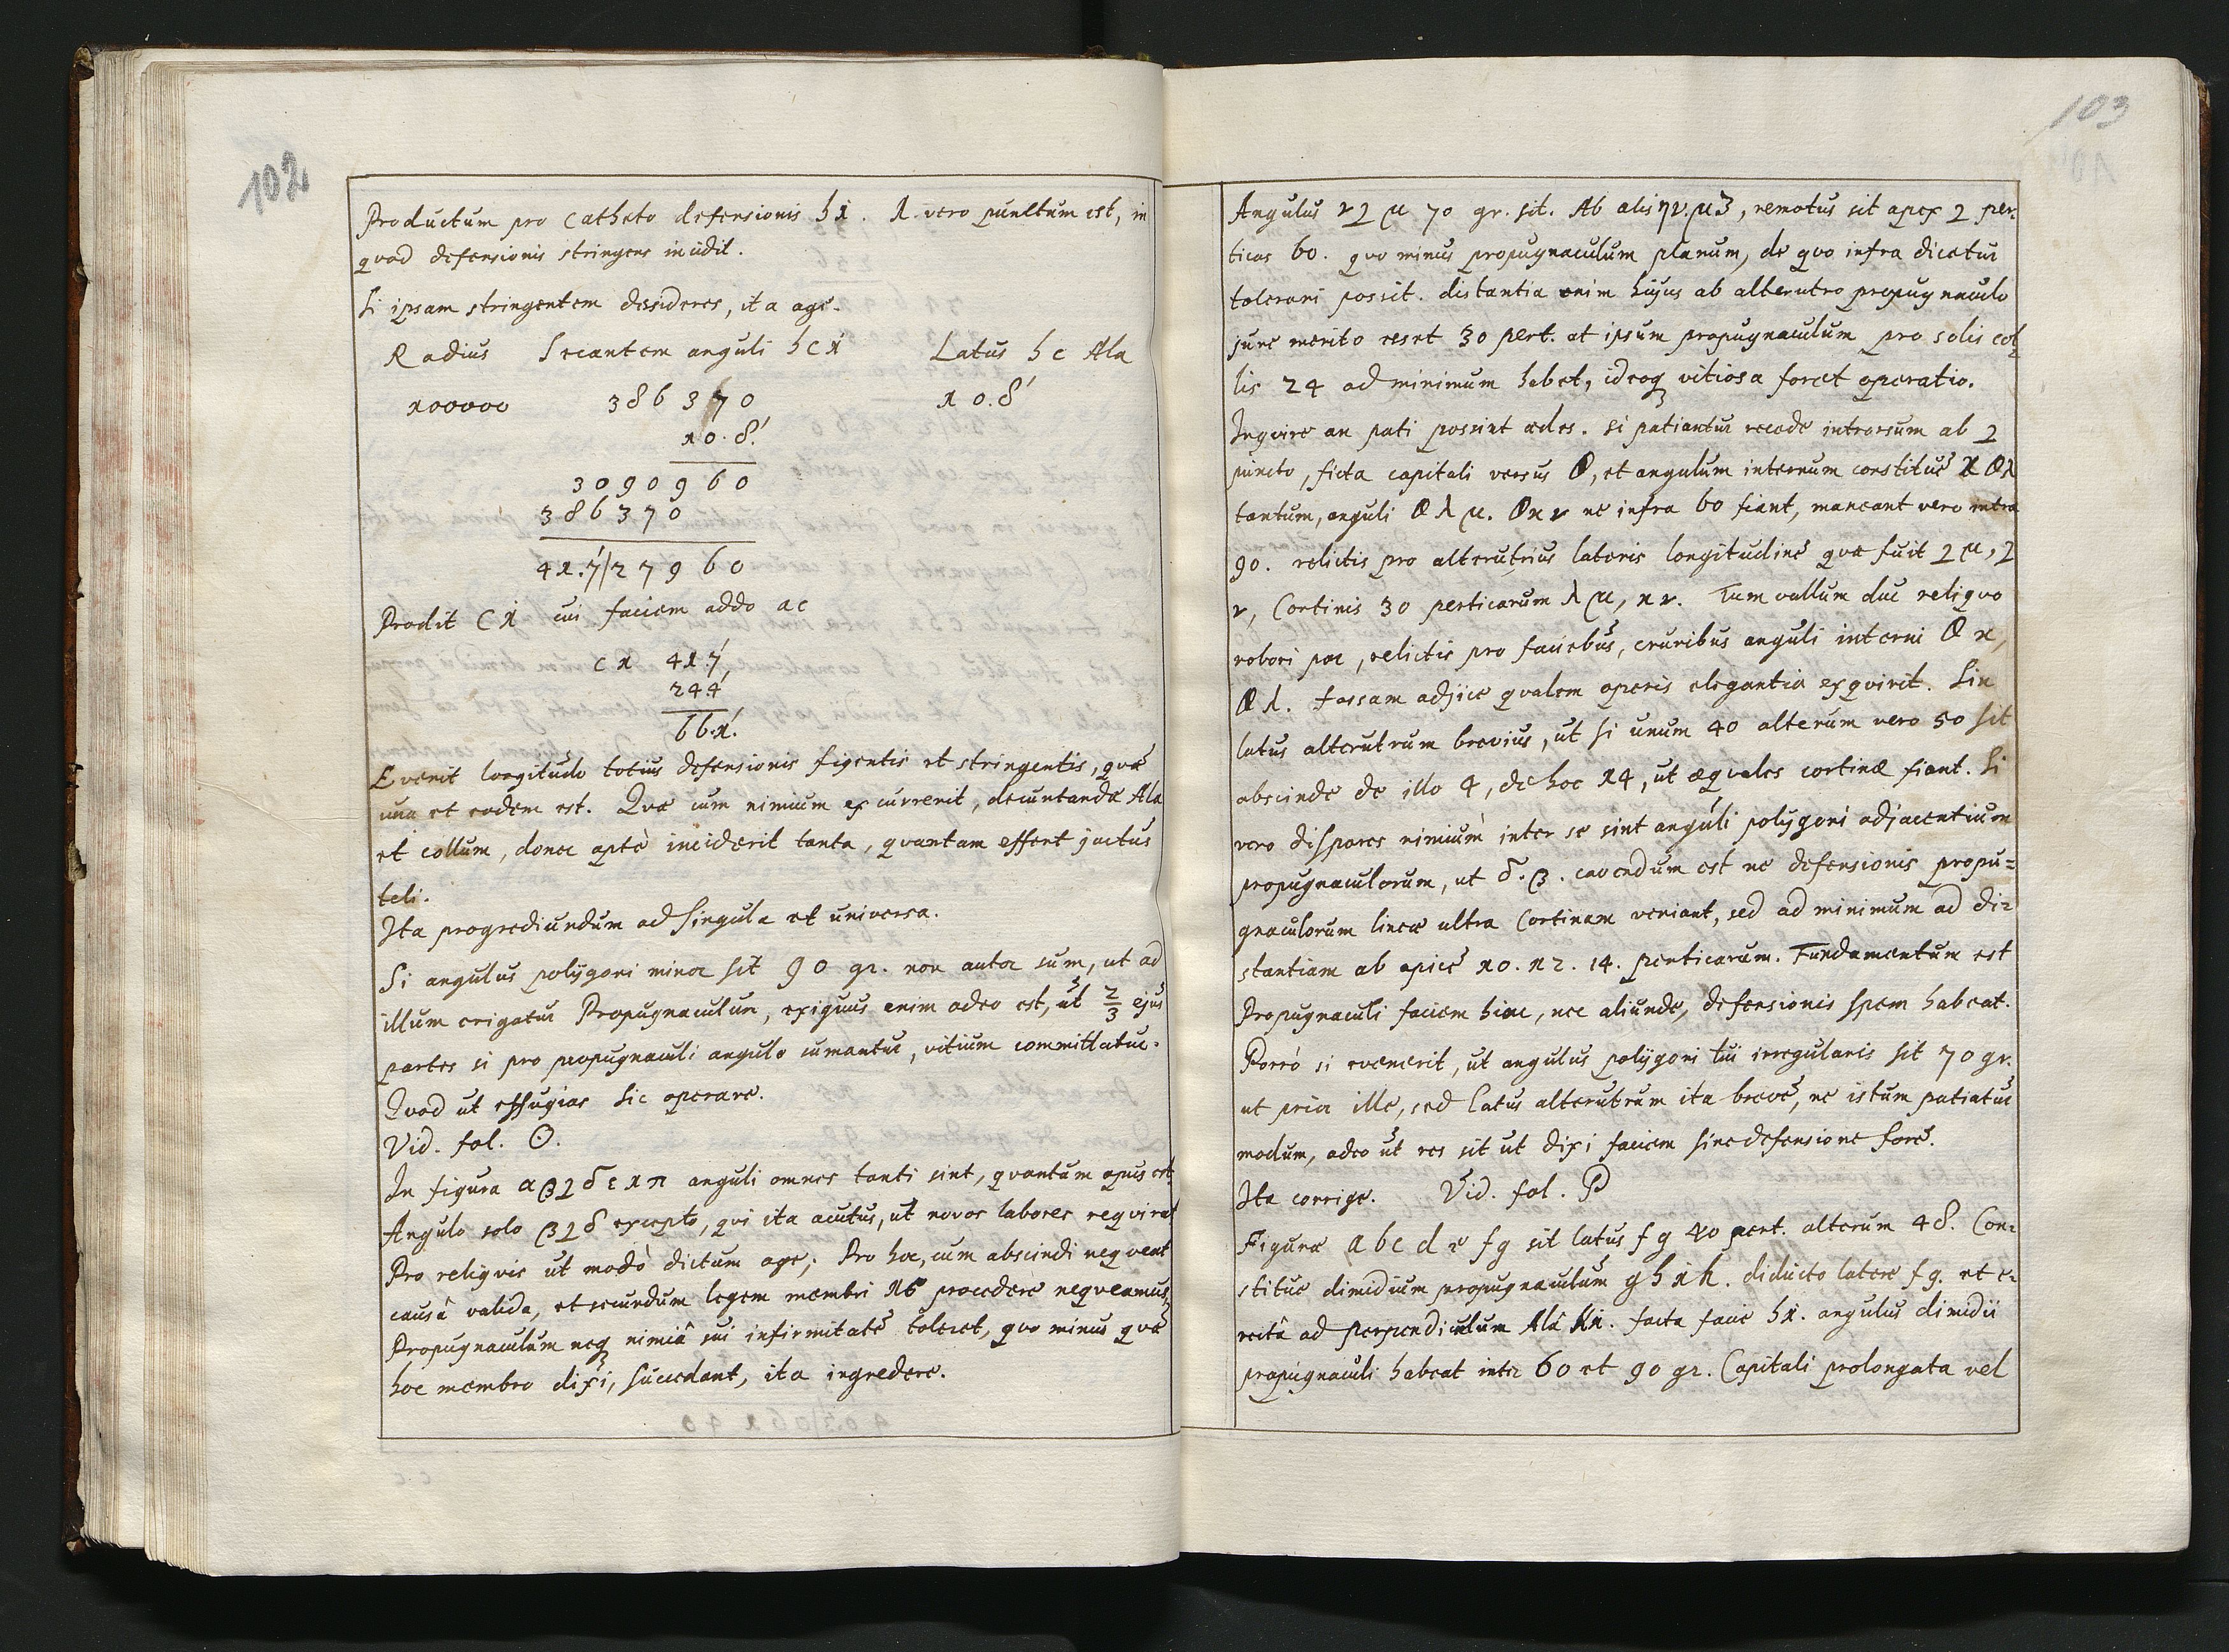 102
Productum pro Catheto defensionis hi. i. vero punctum est, in
quod defensionis stringens incidit.
Si ipsam stringentem desideres, ita age.
Radius Secantem anguli hci Latus hc Ala
100000 386370 10.8'
10.8'
3090960
386370
41.7'|27960
Prodit Ci cui faciem addo ac
ci 41.7'
24.4'
66.1'.
Evenit longitudo totius defensionis figentis et stringentis, quæ
una et eadem est. Quæ cum nimium excurrerit, decurtanda Ala
et collum, donec aptè inciderit tanta, quantam effert jactus
teli.
Ita progrediundum ad singula et universa.
Si angulus polygoni minor sit 90 gr. non autor sum, ut ad
illum erigatur Propugnaculum, exiguus enim adeo est, ut 2/3 ejus
partes si pro propugnaculi angulo sumantur, vitium committatur.
Quod ut effugias sic operare.
Vid. fol. O.
In figura α β γ δ ε π anguli omnes tanti sint, quantum opus est
Angulo solo β γ δ excepto, qui ita acutus, ut novos labores requirat
Pro reliquis ut modò dictum age; Pro hoc, cum abscindi nequeat
causâ valida, et secundum legem membri 16 procedere nequeamus,
Propugnaculum neq nimiâ sui infirmitate toleret, quo minus quæ
hoc membro dixi, succedant, ita ingredere.
103
Angulus ν γ μ 70 gr. sit. Ab alis ην. μ3, remotus sit apex γ per-
ticas 60. quo minus propugnaculum planum, de quo infra dicetur
tolerari possit. distantia enim hujus ab alterutro propugnaculo
jure merito esset 30 pert. et ipsum propugnaculum pro solis col-
lis 24 ad minimum habet, ideoq vitiosa foret operatio.
Inquire an pati possint ædes. si patiantur recede introrsum ab γ
puncto, ficta capitali versus θ, et angulum internum constitue κ θ λ
tantum, anguli θ λ μ. θ κ ν ne infra 60 fiant, maneant vero intra
90. relictis pro alterutrius lateris longitudine quæ fuit γ μ, γ
ν, Cortinis 30 perticarum λ μ, κ ν. Tum vallum duc reliquo
robori par, relictis pro faciebus, cruribus anguli interni θ κ,
θ λ. Fossam adjice qualem operis elegantia exquirit. Sin
latus alterutrum brevius, ut si unum 40 alterum vero 50 sit
abscinde de illo 4, de hoc 14, ut æquales cortinæ fiant. Si
vero dispares nimium inter se sint anguli polygoni adjacentium
propugnaculorum, ut δ. β. cavendum est ne defensionis propu=
gnaculorum lineæ ultra Cortinam veniant, sed ad minimum ad di-
stantiam ab apice 10. 12. 14. perticarum. Fundamentum est
Propugnaculi faciem hinc, nec aliunde, defensionis spem habeat.
Porrò si evenerit, ut angulus polygoni tui irregularis sit 70 gr.
ut prior ille, sed latus alterutrum ita breve, ne istum patiatur
modum, adeo ut res sit ut dixi faciem sine defensione fore.
Ita corrige. Vid. fol. P
Figuræ a b c d e f g sit latus f g 40 pert. alterum 48. Con-
stitue dimidium propugnaculum g h i k. diducto latere f g. et e-
rectâ ad perpendiculum Alâ ki. facta facie hi. angulus dimidii
propugnaculi habeat inter 60 et 90 gr. Capitali prolongata vel